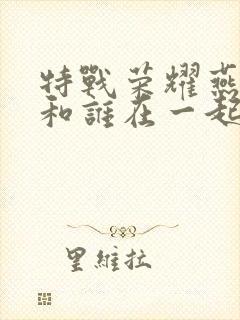 特戰荣耀燕
和誰在一起
里維拉